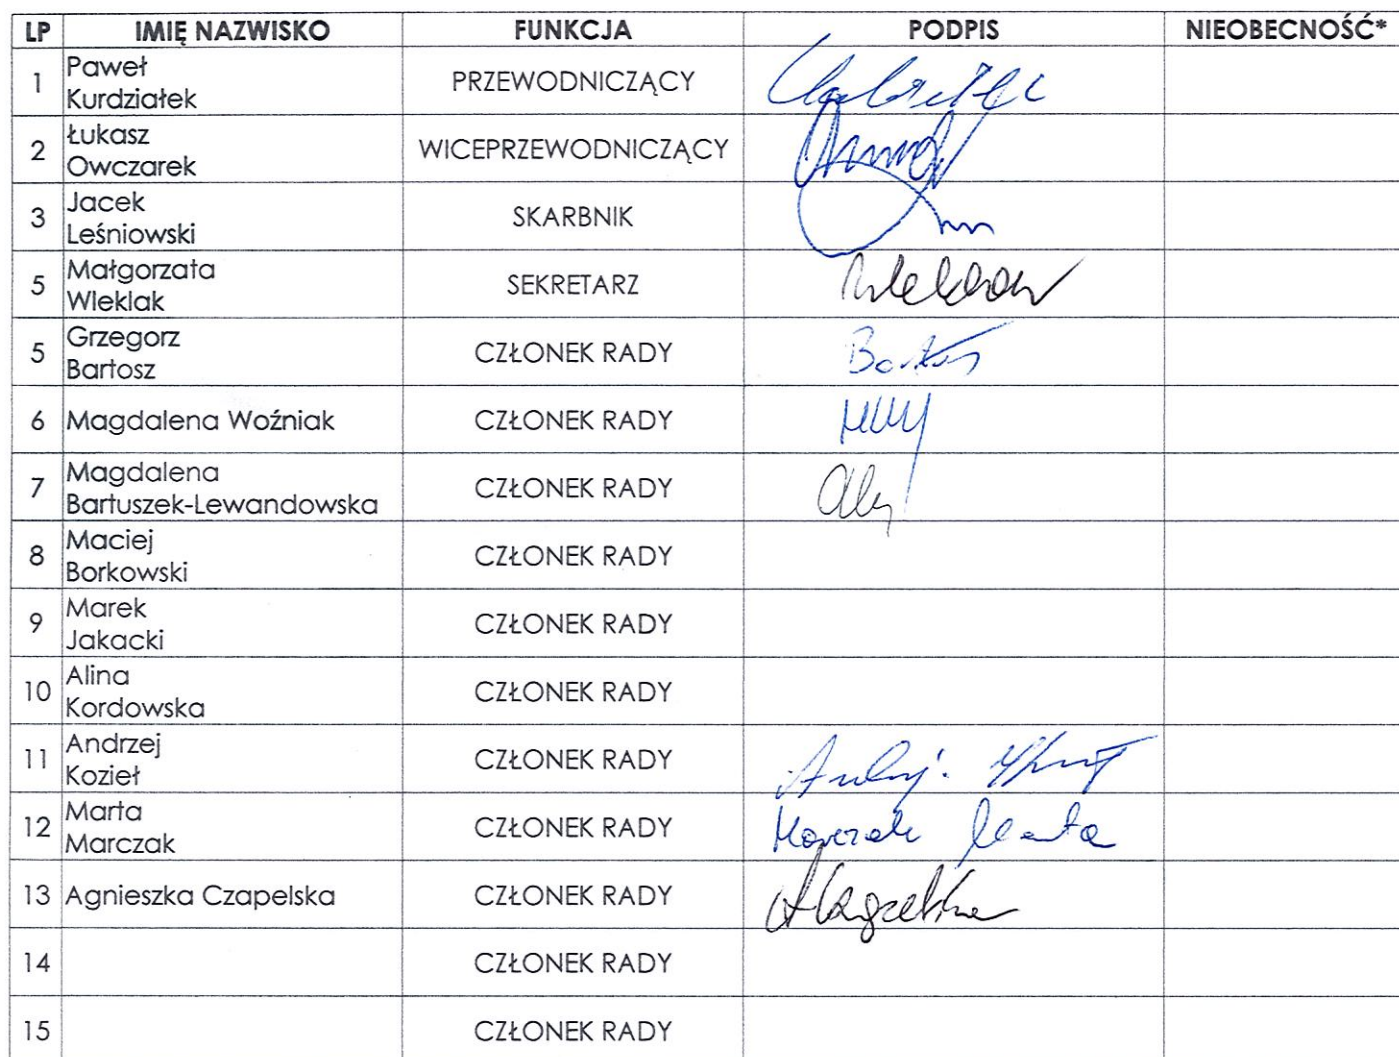 LP IMIĘ NAZWISKO FUNKCJA PODPIS NIEOBECNOŚĆ*
1 Paweł
Kurdziałek PRZEWODNICZĄCY
2 Łukasz
Owczarek WICEPRZEWODNICZĄCY
3 Jacek
Leśniowski SKARBNIK
5 Małgorzata
Wleklak SEKRETARZ
5 Grzegorz
Bartosz CZŁONEK RADY
6 Magdalena Woźniak CZŁONEK RADY
7 Magdalena
Bartuszek-Lewandowska CZŁONEK RADY
8 Maciej
Borkowski CZŁONEK RADY
9 Marek
Jakacki CZŁONEK RADY
10 Alina
Kordowska CZŁONEK RADY
11 Andrzej
Kozieł CZŁONEK RADY
12 Marta
Marczak CZŁONEK RADY Marczak Marta
13 Agnieszka Czapelska CZŁONEK RADY
14 CZŁONEK RADY
15 CZŁONEK RADY